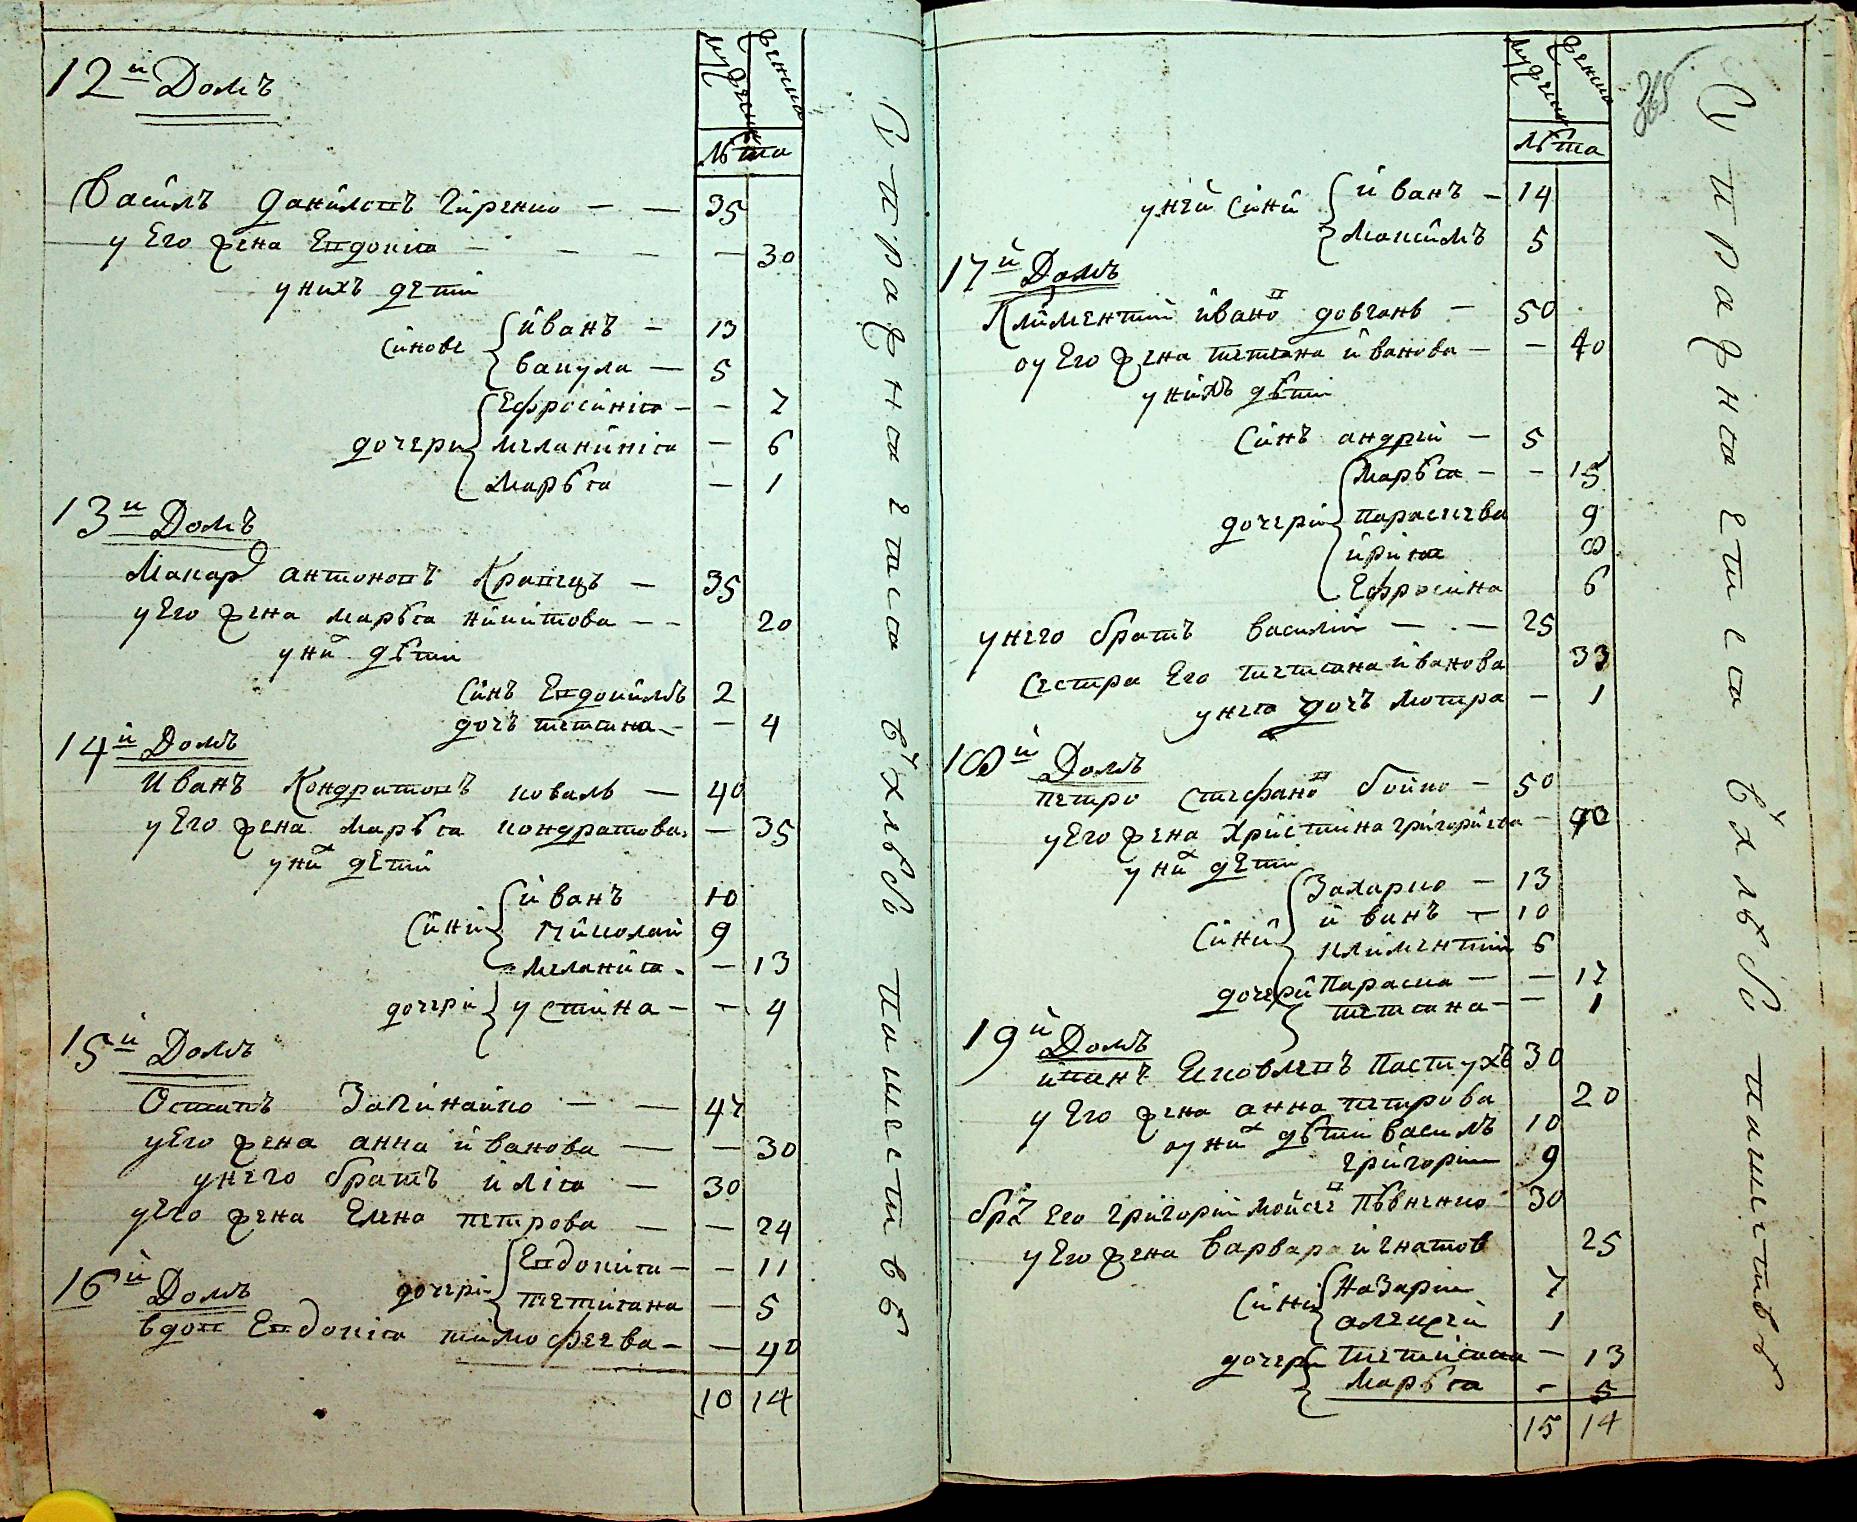 12й Домъ
мужеска
женска
лѣта
Василъ Данилопъ Гиренко — — 35
у Его жена Епдокиа — — — — 30
у нихъ дети
синове иванъ — 13
вакула — 5
дочери Ефросиніа — — 7
меланийніа — 6
Маръѣа — 1
13й Домъ
Макар антонопъ Крапецъ — 35
у Его жена маръѣа никитова — — 20
у них дѣти
Синъ Епдокимъ 2
дочъ тетиана — — 4
14й Домъ
Иванъ Кондратопъ коваль — 40
у Его жена маръѣа кондратова — 35
у них дети
Сини иванъ 10
николай 9
меланиа — 13
дочери устина — — 4
15й Домъ
Остапъ — — 47
у Его жена анна иванова — — 30
у него братъ иліа — 30
у Его жена Елена петрова — — 24
дочери Епдокиа — — 11
тетиана — 5
16й Домъ
вдоп Епдокиа тимофеева — — 40
10 14
Стражна етса в хлѣбо пашестпѣ
мужеска
женска
365
лѣта
у ней Сини иванъ — 14
Максимъ 5
17й Домъ
Климентий ивано п довгань — 50
оу Его жена тетиана иванова — — 40
у нихъ дѣти
Синъ андрей — 5
дочери Маръѣа — — 15
параскева 9
ирина 8
Ефросина 6
у него братъ василий — — 25
Сестра Его тетиана иванова 33
у неа дочъ мотра — 1
18й Домъ
петро Стефано п бойко — 50
у Его жена Христина григориева — 40
у них дети
Сини Захарко — 13
иванъ — 10
климентий 6
дочери Параска — — 17
тетиана — — 1
19й Домъ
Ековлепъ Пастухъ 30
у Его жена анна петрова 20
оу них дѣти василъ 10
григорий 9
бра т Его григорий мойсее п Пѣвненко 30
у Его жена варвара игнатов 25
Сини Назарий 7
алексей 1
дочери тетиана — 13
Маръѣа — 5
15 14